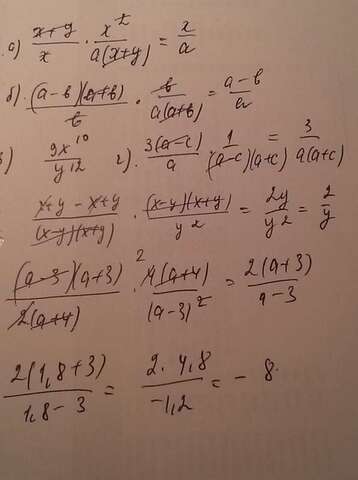 а) (x+y)/x · x²/(a(x+y)) = x/a
б) (a-b)(a+b)/b · b/(a(a+b)) = (a-b)/a
в) 9x¹⁰/y¹² г) 3(a-c)/a · 1/((a-c)(a+c)) = 3/(a(a+c))
(x+y-x+y)/((x-y)(x+y)) · (x-y)(x+y)/y² = 2y/y² = 2/y
(a-3)(a+3)/(2(a+4)) · ²4(a+4)/(a-3)² = 2(a+3)/(a-3)
2(1,8+3)/(1,8-3) = 2·4,8/-1,2 = -8